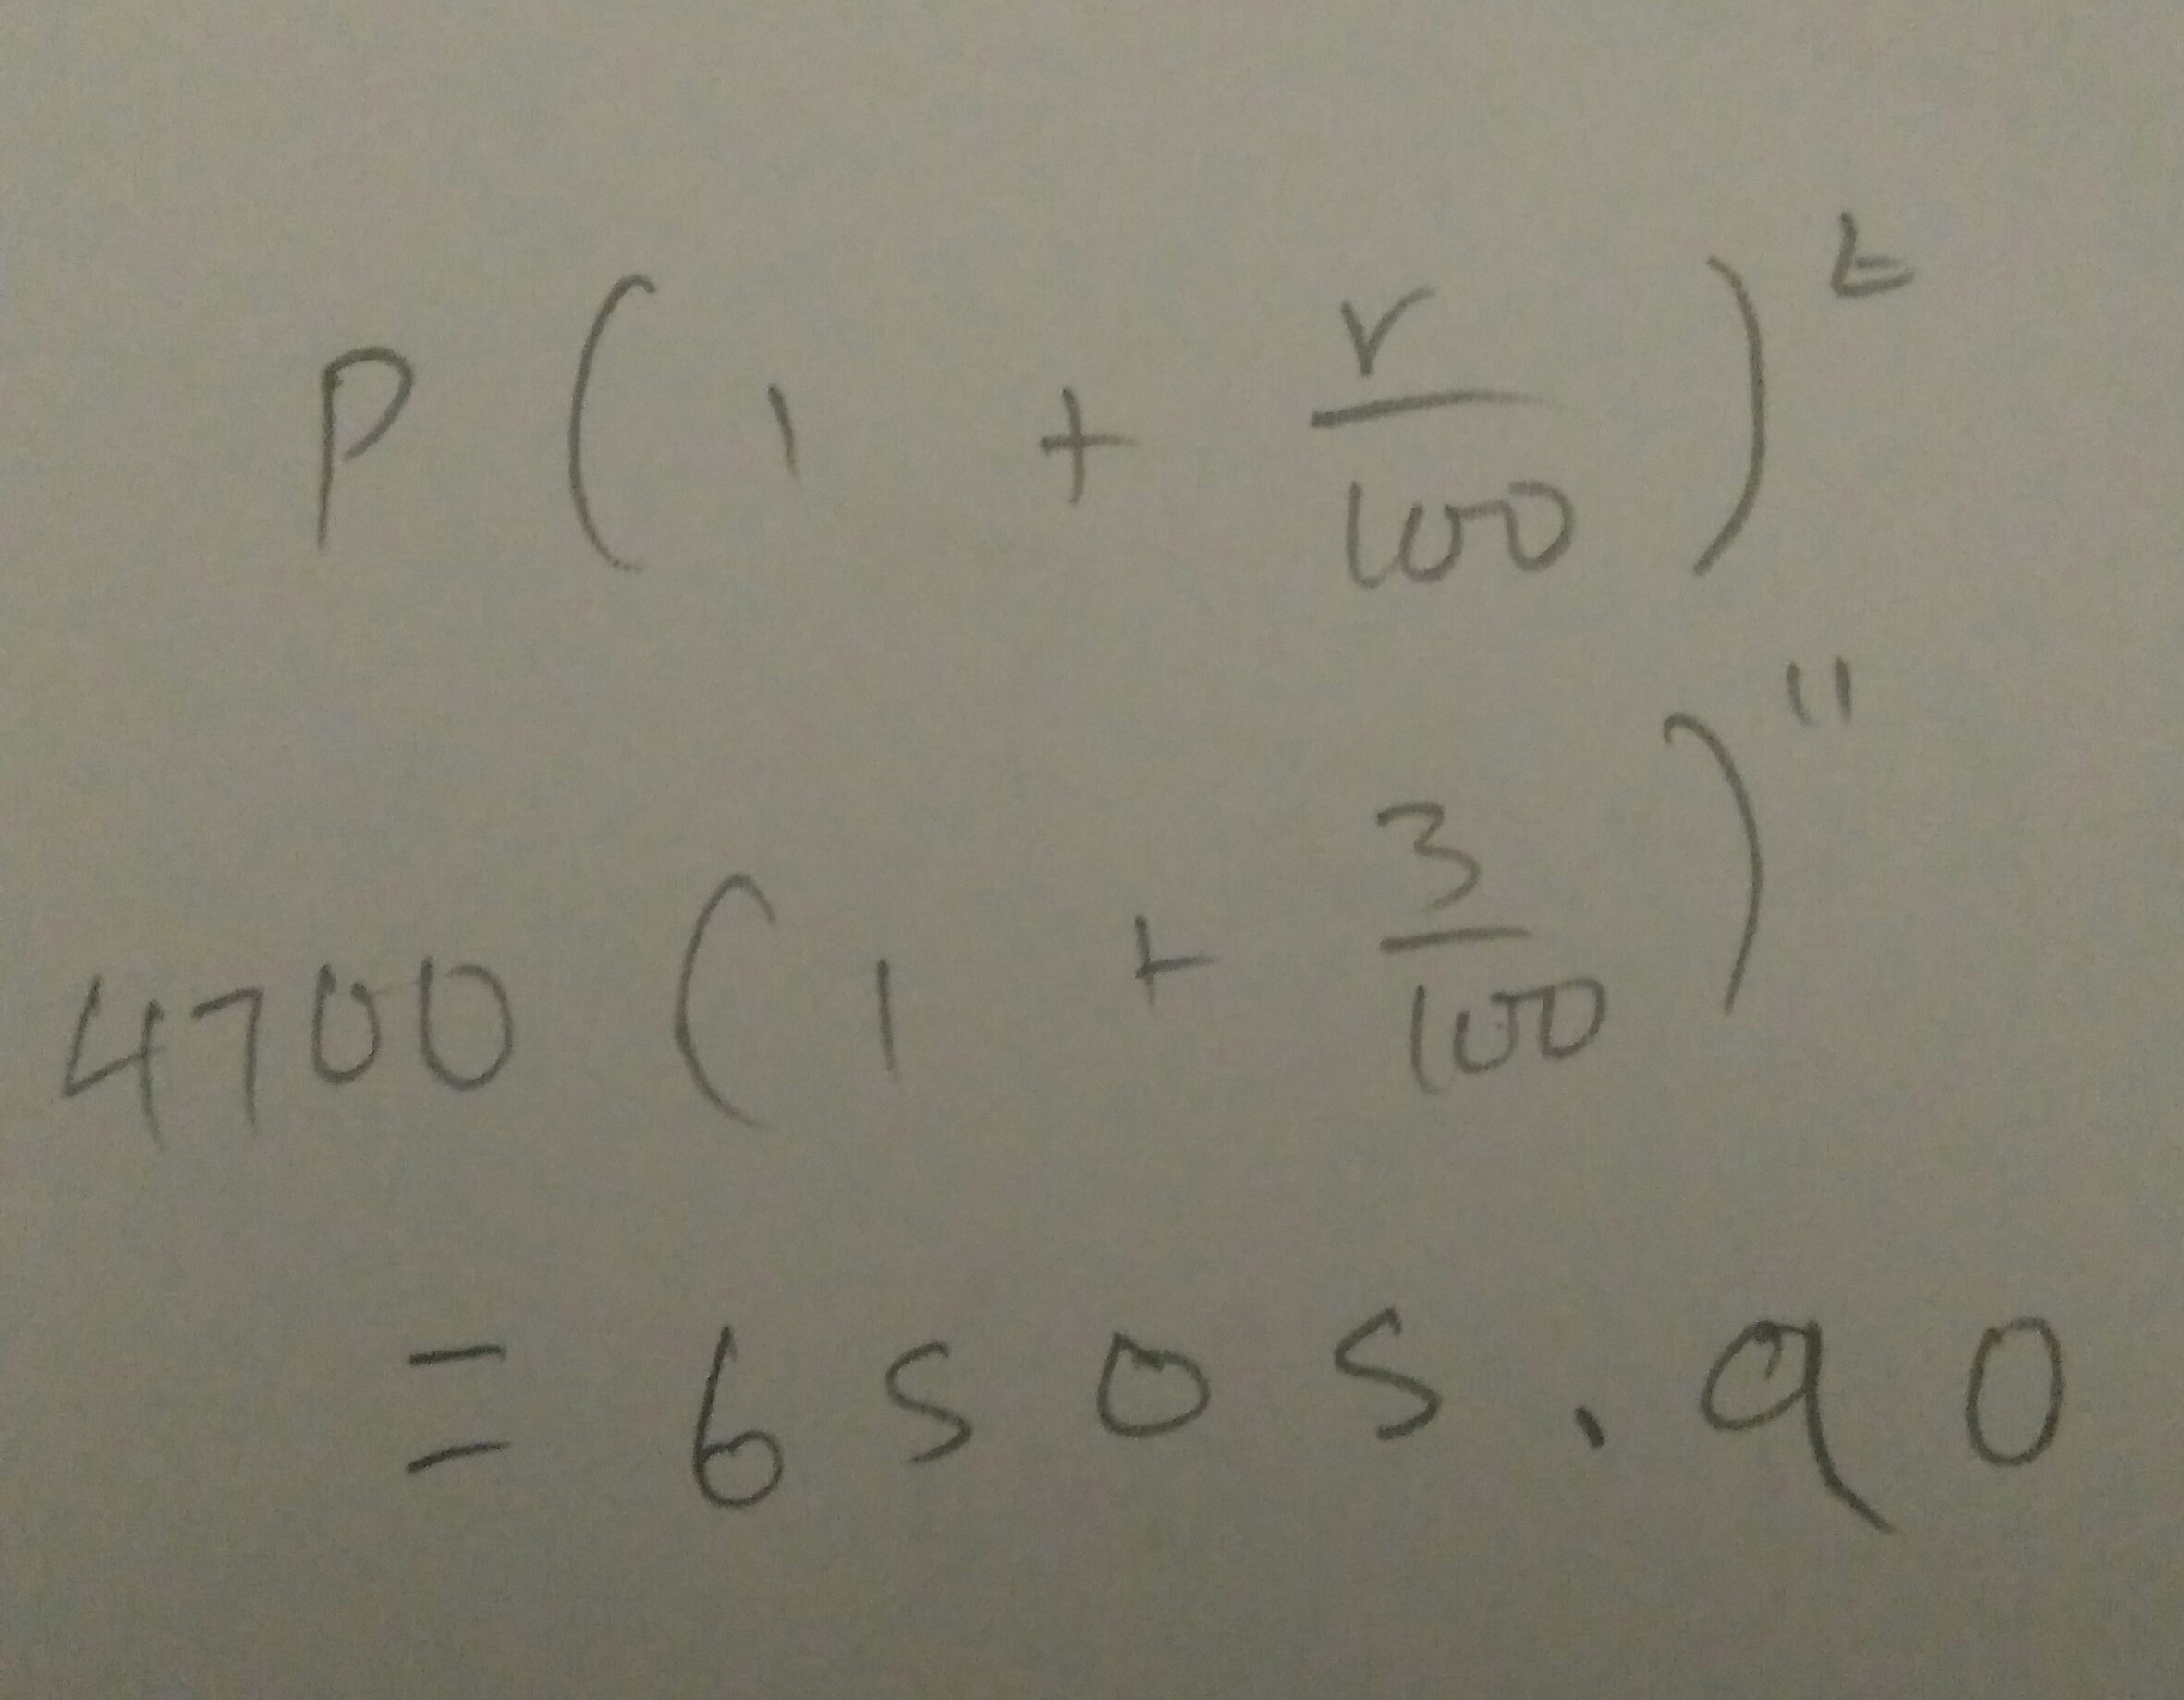 P ( 1 + r/100 )^t
4700 ( 1 + 3/100 )^11
= 6505.90